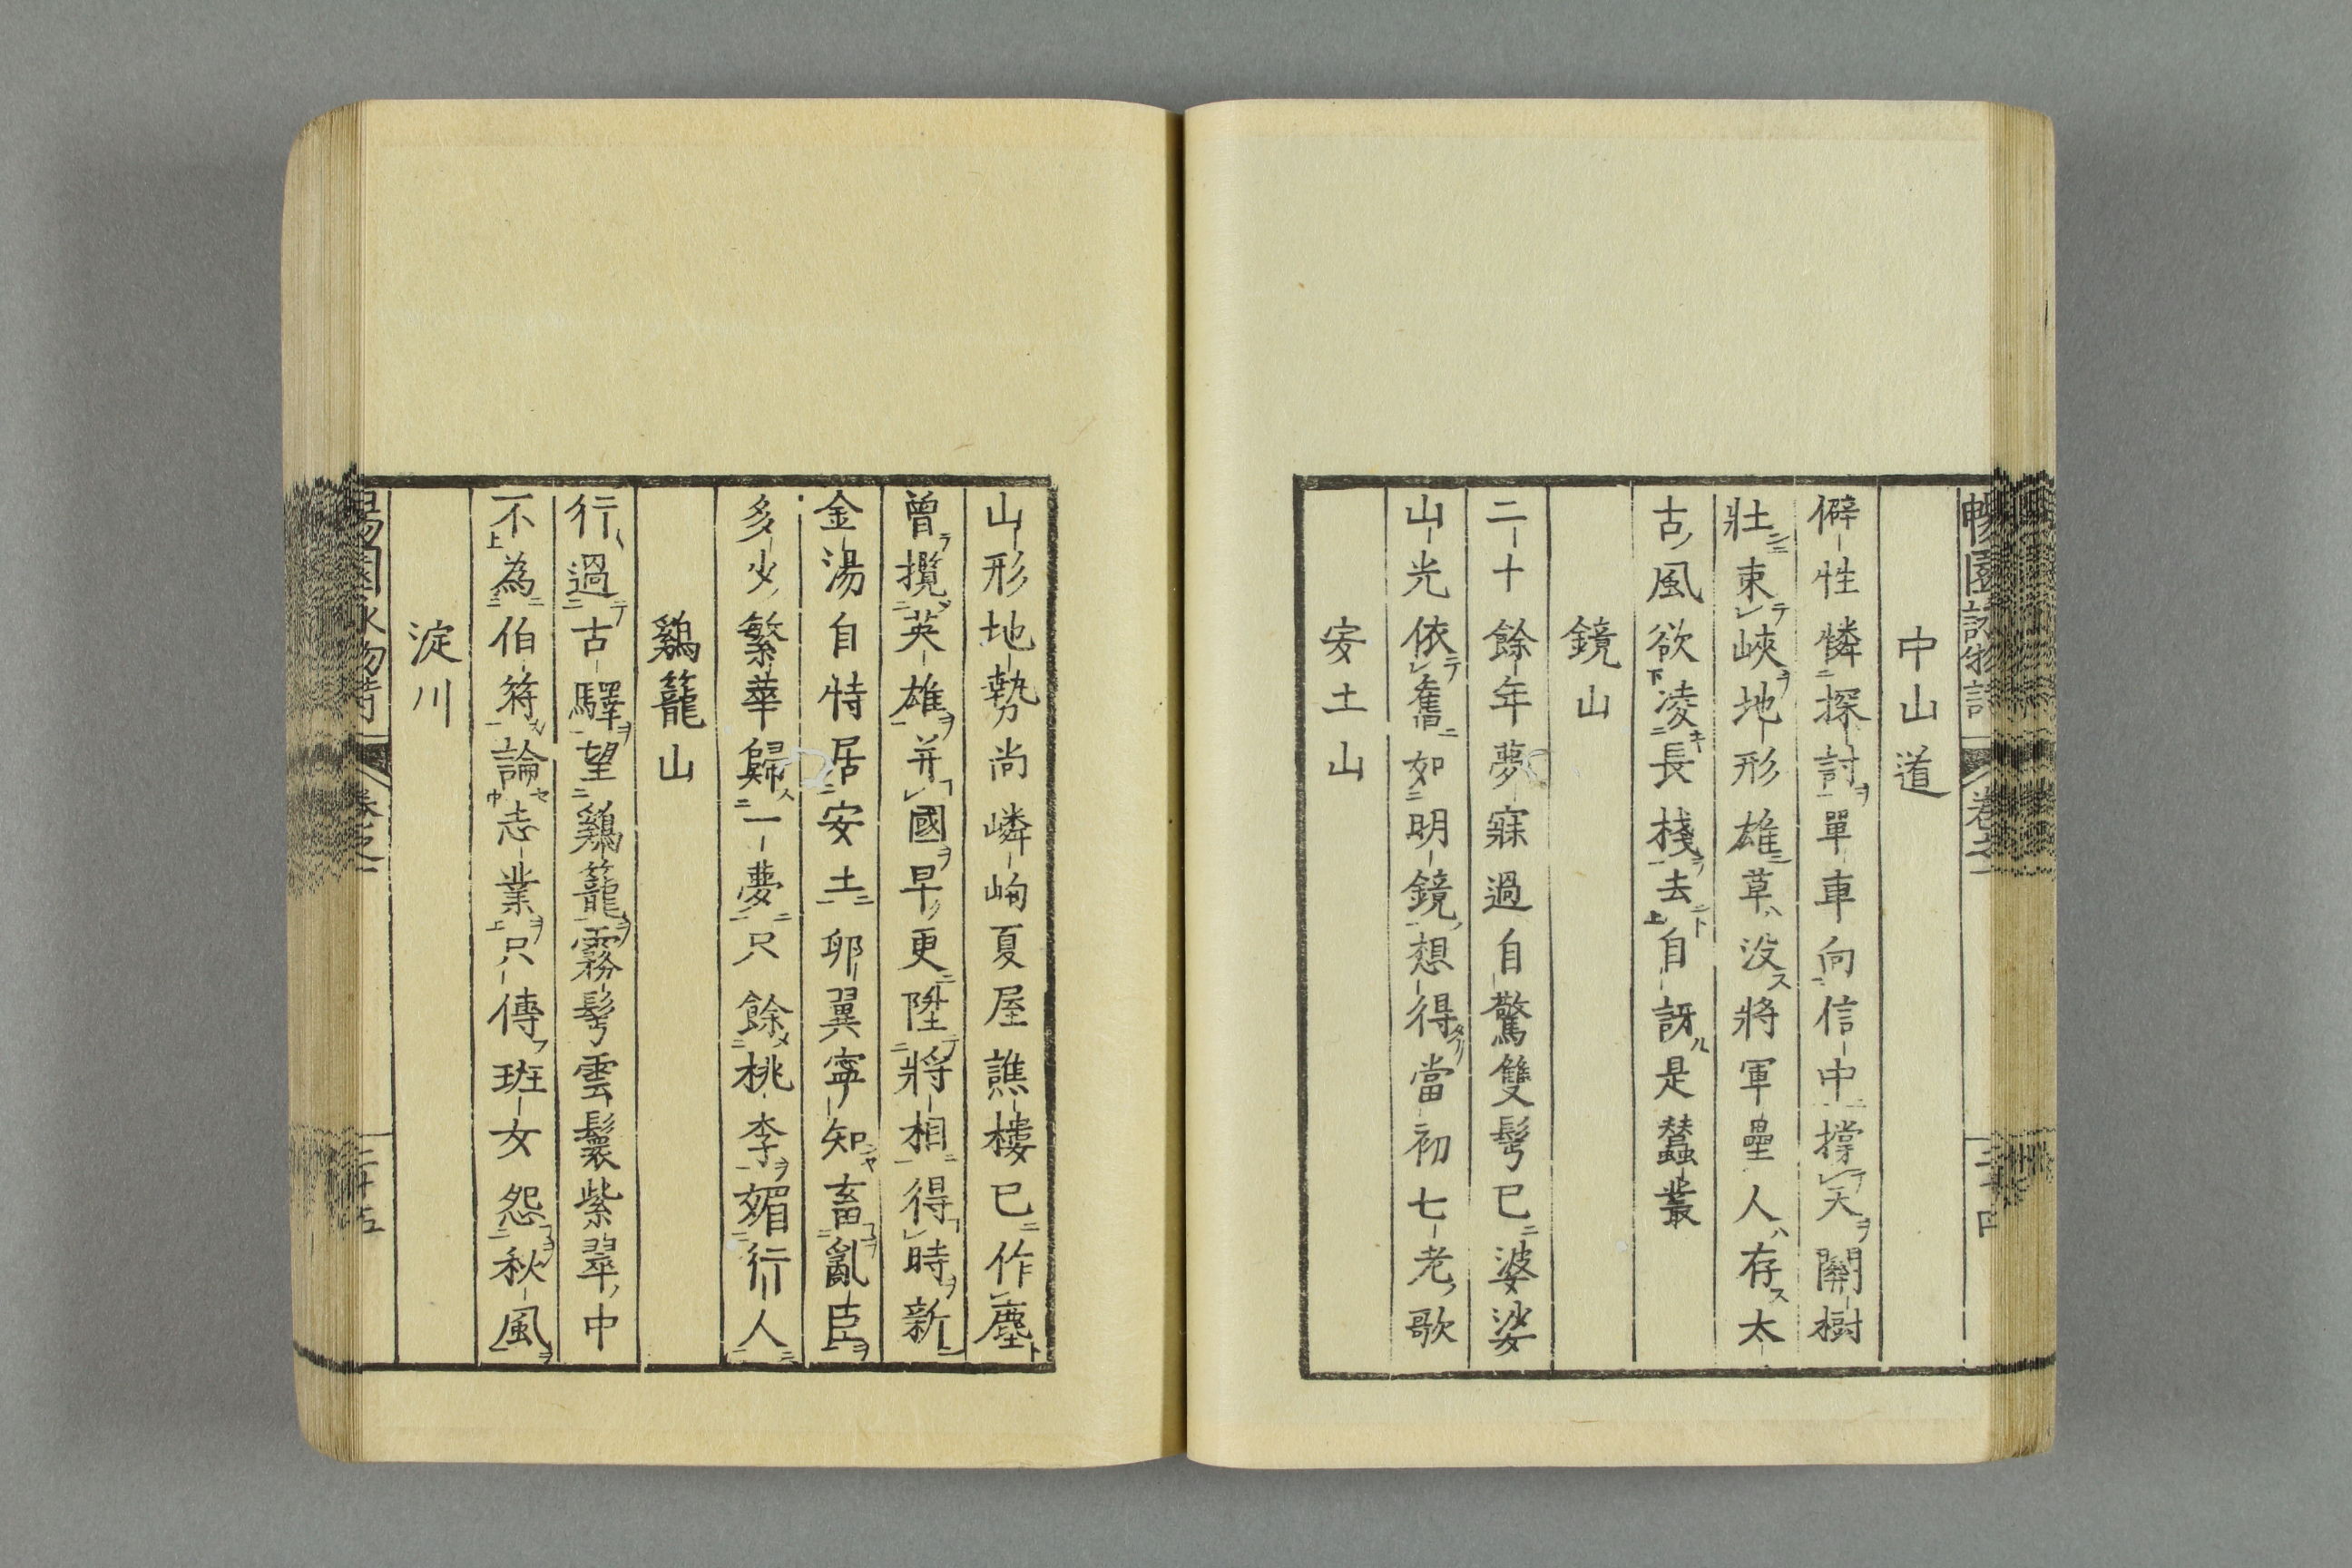 中山道
僻性憐探討單車向信中撐天關樹
壯東峽地形雄草没將軍壘人存太
古風欲凌長棧去自訝是蠶叢
鏡山
二十餘年夢寐過自驚雙髩已婆娑
山光依舊如明鏡想得當初七老歌
安土山
山形地勢尚嶙峋夏屋譙樓已作塵
曾攬英雄并國早更陞將相得時新
金湯自恃居安土郰翼寧知畜亂臣
多少繁華歸一夢只餘桃李媚行人
鷄籠山
行過古驛望鷄籠霧髩雲鬟紫翠中
不為伯符論志業只傳班女怨秋風
淀川
暢園詠物詩 卷之一